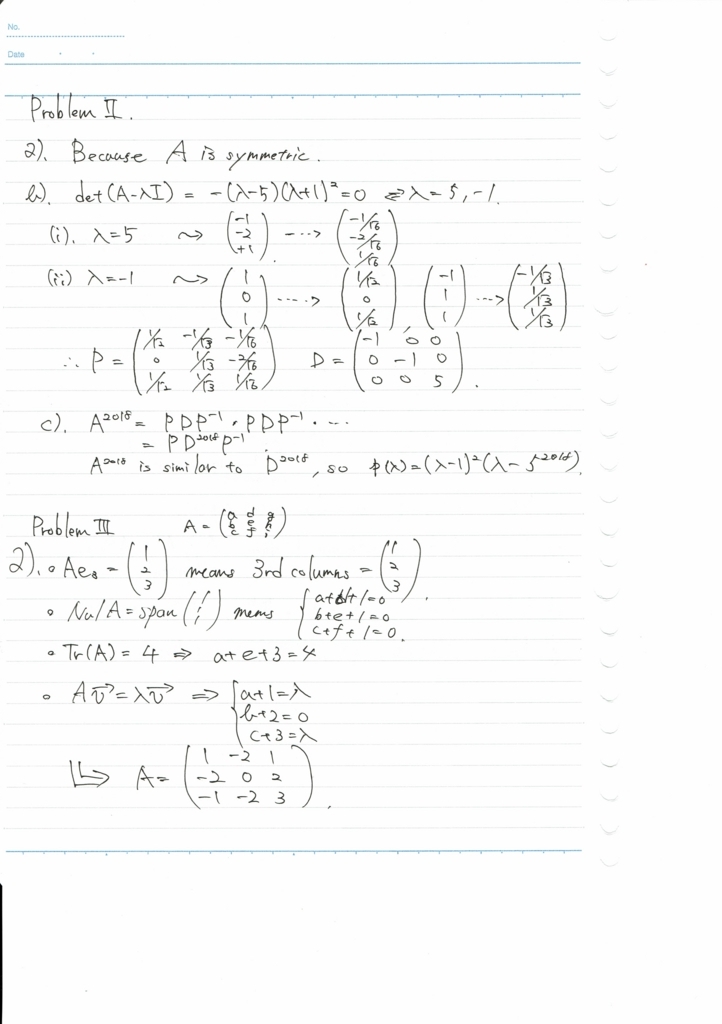 No.
Date
Problem II.
a). Because A is symmetric.
b). det(A-λI) = -(λ-5)(λ+1)²=0 ⇔ λ=5, -1.
(i). λ=5 ⇝ (-1 -2 +1) ---> (-1/√6 -2/√6 1/√6)
(ii) λ=-1 ⇝ (1 0 1) ----> (1/√2 0 1/√2) (-1 1 1) ---> (-1/√3 1/√3 1/√3)
∴ P = (1/√2 -1/√3 -1/√6
0 1/√3 -2/√6
1/√2 1/√3 1/√6) D = (-1 0 0
0 -1 0
0 0 5).
c). A²⁰¹⁸ = PDP⁻¹・PDP⁻¹・...
= PD²⁰¹⁸P⁻¹.
A²⁰¹⁸ is similar to D²⁰¹⁸, so p(λ)=(λ-1)²(λ-5²⁰¹⁸).
Problem III A = (a d g
b e h
c f i)
a). ∘ Ae₃ = (1 2 3) means 3rd columns = (1 2 3).
∘ Nul A = span (1 1 1) mems { a+d+1=0
b+e+1=0
c+f+1=0.
∘ Tr(A) = 4 ⇒ a+e+3=4
∘ Av = λv ⇒ { a+1=λ
b+2=0
c+3=λ
↳ A = (1 -2 1
-2 0 2
-1 -2 3).